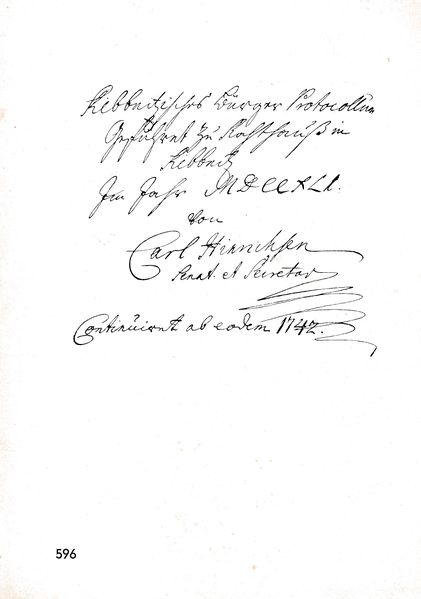 Ribbnitzisches Bürger Protocollum
Geführet zu Rathhauß in
Ribbnitz
Im Jahr MDCCXLI.
von
Carl Hinrichsen
Senat. et Secretar
Continuiret ab eodem 1742.
596